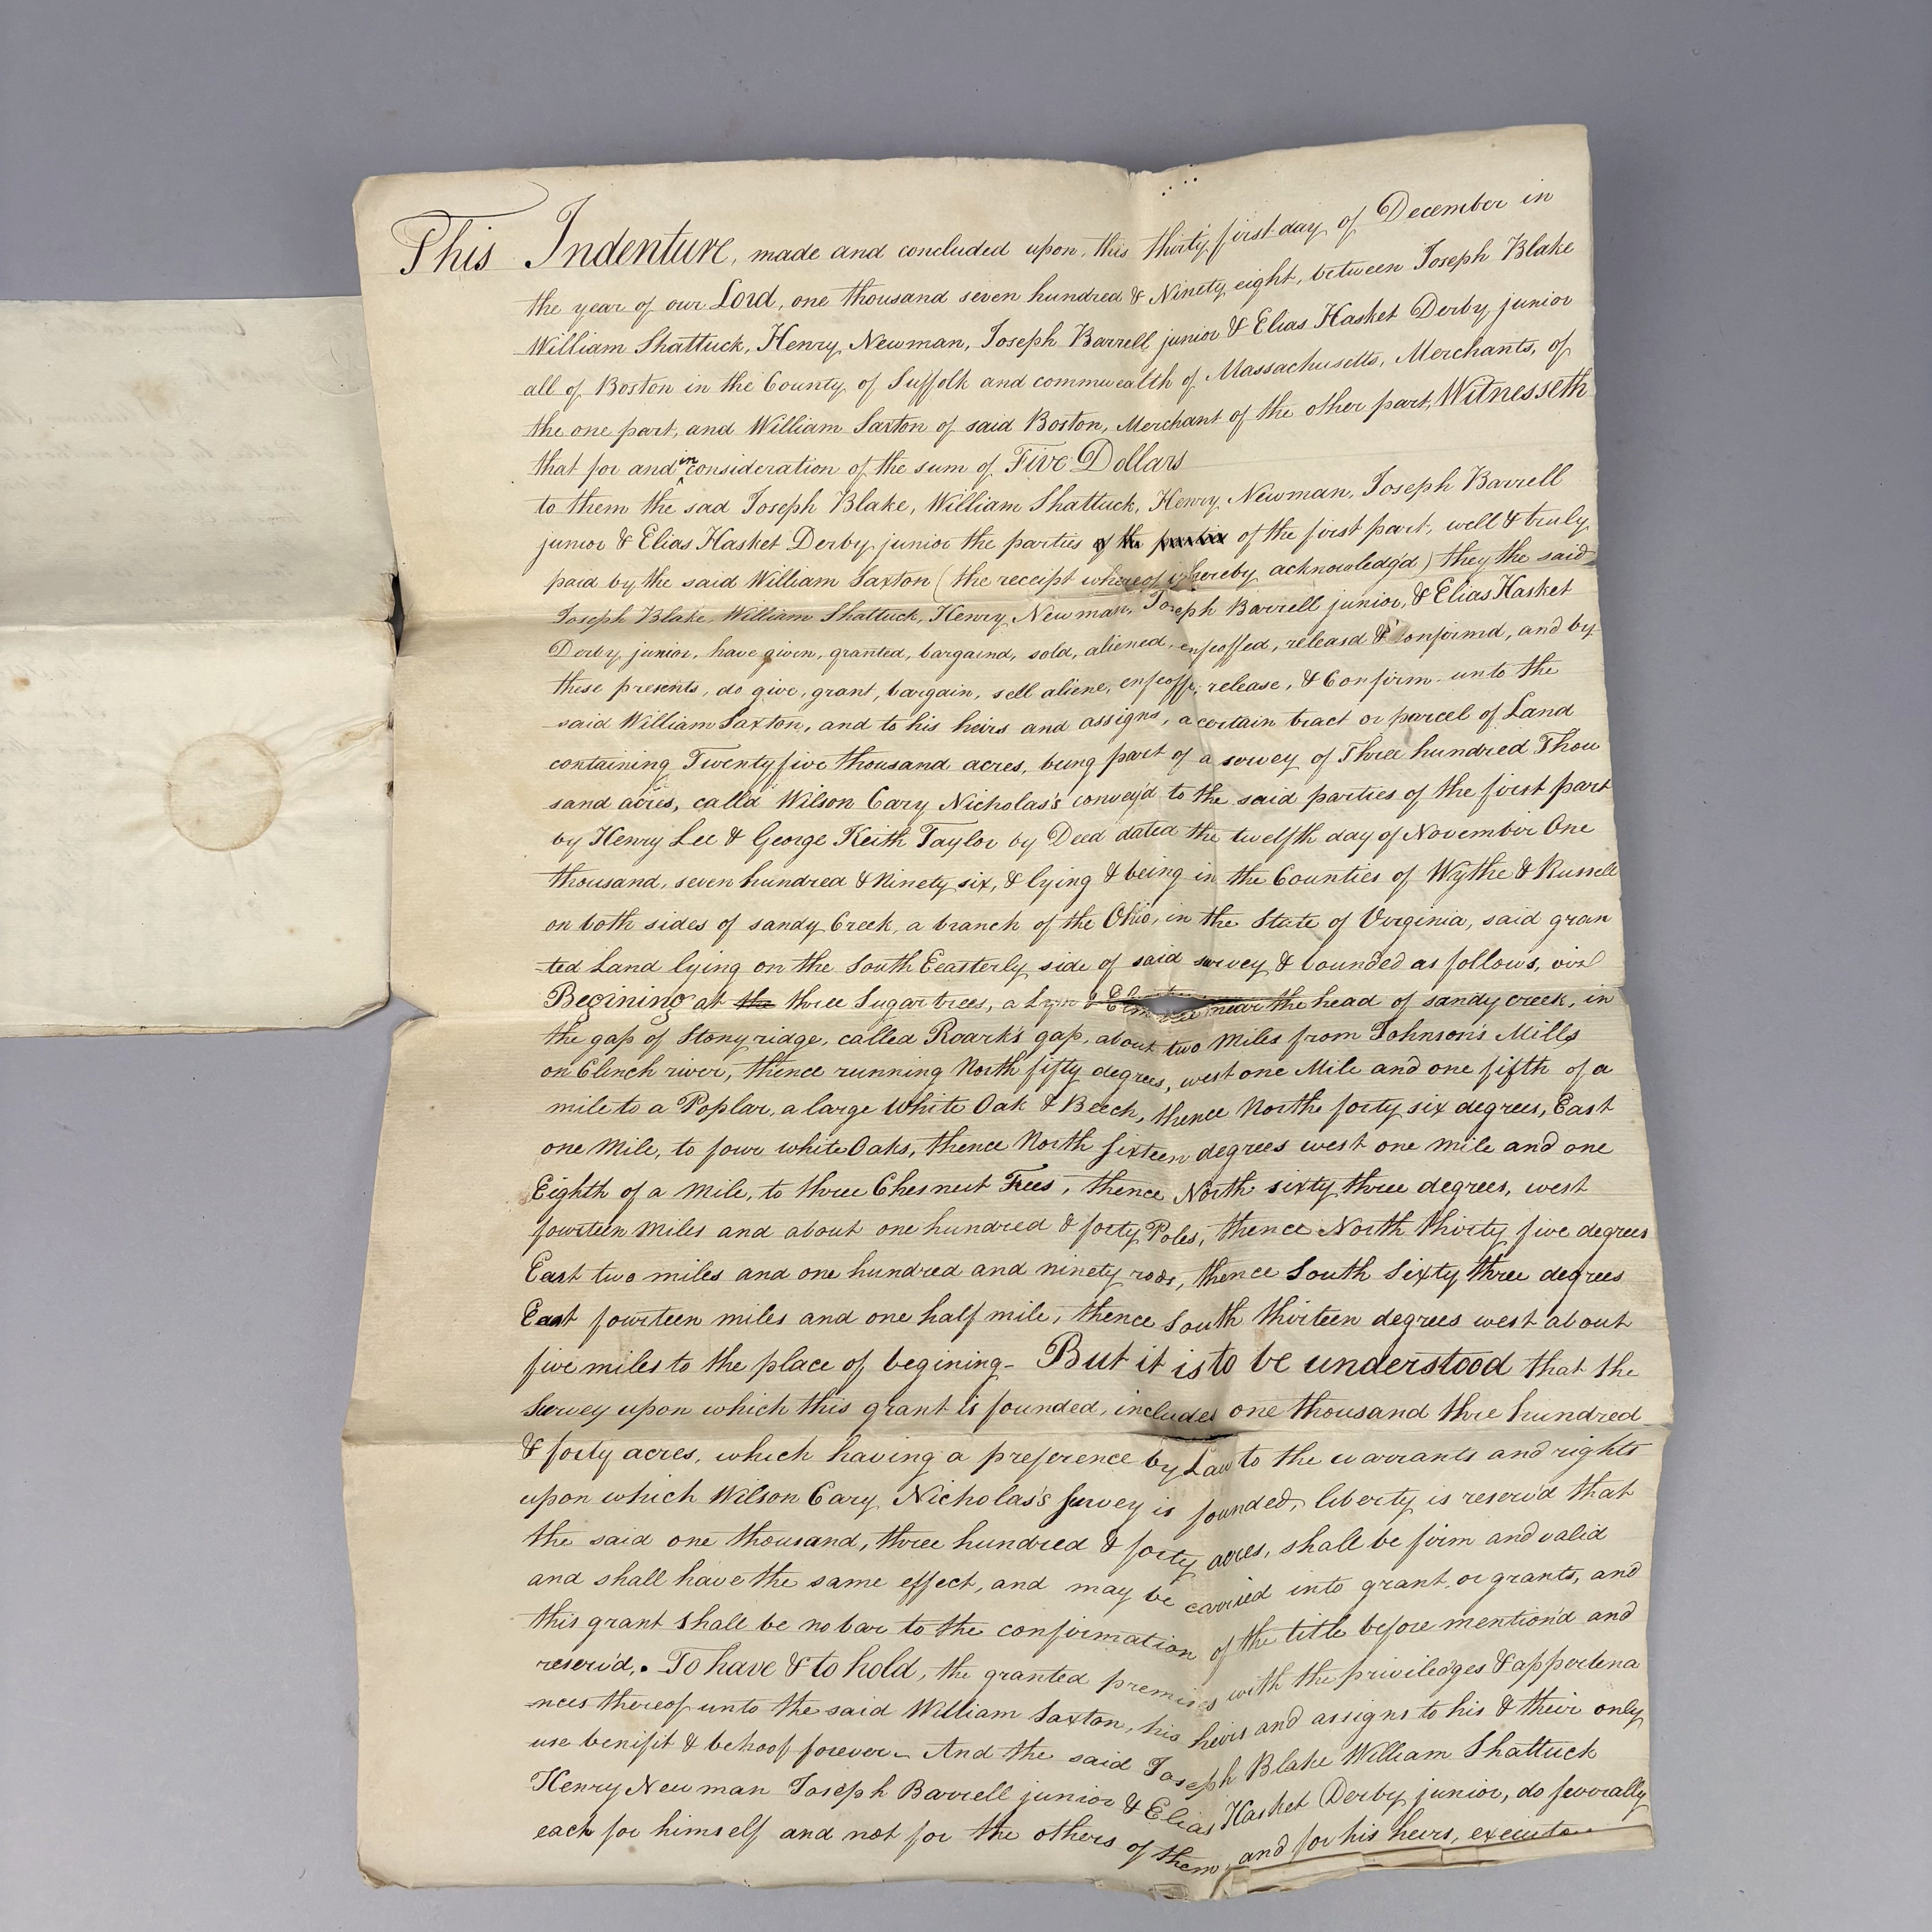 This Indenture, made and concluded upon, this thirty first day of December in
the year of our Lord, one thousand seven hundred & Ninety eight, between Joseph Blake
William Shattuck, Henry Newman, Joseph Barrell junior & Elias Hasket Derby junior
all of Boston in the County of Suffolk and commwealth of Massachusetts, Merchants, of
the one part, and William Saxton of said Boston, Merchant of the other part, Witnesseth
that for and in consideration of the sum of Five Dollars
to them the said Joseph Blake, William Shattuck, Henry Newman, Joseph Barrell
junior & Elias Hasket Derby junior the parties of the parties of the first part, well & truly
paid by the said William Saxton (the receipt whereof is hereby acknowledg'd) they the said
Joseph Blake, William Shattuck, Henry Newman, Joseph Barrell junior, & Elias Hasket
Derby junior, have given, granted, bargaind, sold, aliened, enfeoffed, releasd & Confirmd, and by
these presents, do give, grant, bargain, sell aliene, enfeoffe, release, & Confirm unto the
said William Saxton, and to his heirs and assigns, a certain tract or parcel of Land
containing Twenty five thousand acres, being part of a survey of Three hundred Thou
sand acres, calld Wilson Cary Nicholas's convey'd to the said parties of the first part
by Henry Lee & George Keith Taylor by Deed dated the twelfth day of November One
thousand, seven hundred & Ninety six, & lying & being in the Counties of Wythe & Russell
on both sides of sandy Creek, a branch of the Ohio, in the State of Virginia, said gran
-ted Land lying on the South Eeasterly side of said survey & bounded as follows, viz
Begining at the three Sugar trees, a Lyn & Elm tree near the head of sandy creek, in
the gap of Stony ridge, called Roark's gap, about two Miles from Johnson's Mills
on Clinch river, thence running North fifty degrees, west one Mile and one fifth of a
mile to a Poplar, a large White Oak & Beech, thence Northe forty six degrees, East
one Mile, to four white Oaks, thence North sixteen degrees west one mile and one
Eighth of a Mile, to three Chesnut Trees, thence North sixty three degrees, west
fourteen Miles and about one hundred & forty Poles, thence North thirty five degrees
East two miles and one hundred and ninety rods, thence South Sixty three degrees
East fourteen miles and one half mile, thence South thirteen degrees west about
five miles to the place of begining - But it is to be understood that the
Survey upon which this grant is founded, includes one thousand thre hundred
& forty acres, which having a preference by Law to the warrants and rights
upon which Wilson Cary Nicholas's Survey is founded, liberty is reserv'd that
the said one thousand, three hundred & forty acres, shall be firm and valid
and shall have the same effect, and may be carried into grant, or grants, and
this grant shall be no bar to the confirmation of the title before mention'd and
reserv'd,. To have & to hold, the granted premises with the priviledges & appertena
-nces thereof unto the said William Saxton, his heirs and assigns to his & their only
use benifit & behoof forever - And the said Joseph Blake William Shattuck
Henry Newman Joseph Barrell junior & Elias Hasket Derby junior, do severally
each for himself and not for the others of them, and for his heirs, executors